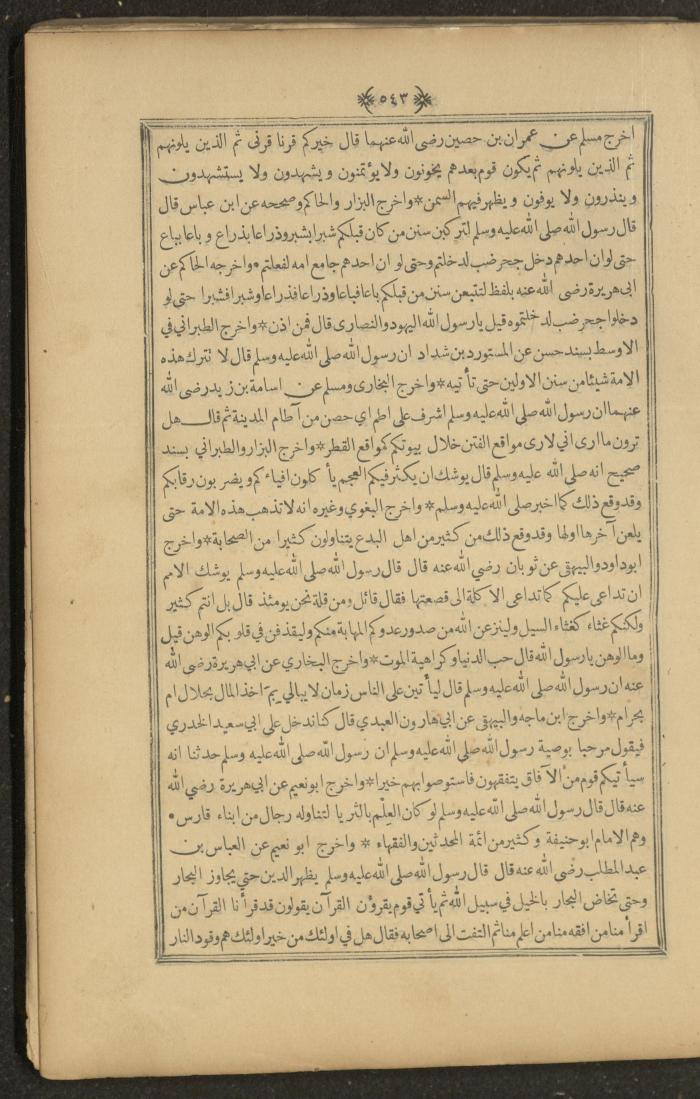 ٥٤٣
اخرج مسلم عن عمران بن حصين رضى الله عنهما قال خيركم قرنا قرنى ثم الذين يلونهم
ثم الذين يلونهم ثم يكون قوم بعدهم يخونون ولا يؤتمنون ويشهدون ولا يستشهدون
وينذرون ولا يوفون ويظهر فيهم السمن * واخرج البزار والحاكم وصححه عن ابن عباس قال
قال رسول الله صلى الله عليه وسلم لتركبن سنن من كان قبلكم شبرا بشبر وذراعا بذراع وباعا بباع
حتى لو ان احدهم دخل جحر ضب لدخلتم وحتى لو ان احدهم جامع امه لفعلتم • واخرجه الحاكم عن
ابى هريرة رضى الله عنه بلفظ لتتبعن سنن من قبلكم باعا فباعا وذراعا فذراعا وشبرا فشبرا حتى لو
دخلوا جحر ضب لدخلتموه قيل يا رسول الله اليهود والنصارى قال فمن اذن * واخرج الطبراني في
الاوسط بسند حسن عن المستورد بن شداد ان رسول الله صلى الله عليه وسلم قال لا تترك هذه
الامة شيئا من سنن الاولين حتى تأتيه * واخرج البخارى ومسلم عن اسامة بن زيد رضى الله
عنهما ان رسول الله صلى الله عليه وسلم اشرف على اطم اي حصن من آطام المدينة ثم قال هل
ترون ما ارى اني لارى مواقع الفتن خلال بيوتكم كمواقع القطر * واخرج البزار والطبراني بسند
صحيح انه صلى الله عليه وسلم قال يوشك ان يكثر فيكم العجم يأكلون افياءكم ويضربون رقابكم
وقد وقع ذلك كما اخبر صلى الله عليه وسلم * واخرج البغوي وغيره انه لا تذهب هذه الامة حتى
يلعن آخرها اولها وقد وقع ذلك من كثير من اهل البدع يتناولون كثيرا من الصحابة * واخرج
ابو داود والبيهقى عن ثوبان رضي الله عنه قال قال رسول الله صلى الله عليه وسلم يوشك الامم
ان تداعى عليكم كما تداعى الاكلة الى قصعتها فقال قائل ومن قلة نحن يومئذ قال بل انتم كثير
ولكنكم غثاء كغثاء السيل ولينزعن الله من صدور عدوكم المهابة منكم وليقذفن في قلوبكم الوهن قيل
وما الوهن يا رسول الله قال حب الدنيا وكراهية الموت * واخرج البخاري عن ابي هريرة رضى الله
عنه ان رسول الله صلى الله عليه وسلم قال ليأتين على الناس زمان لا يبالي بم اخذ المال بحلال ام
بحرام * واخرج ابن ماجه والبيهقى عن ابي هارون العبدي قال كنا ندخل على ابي سعيد الخدري
فيقول مرحبا بوصية رسول الله صلى الله عليه وسلم ان رسول الله صلى الله عليه وسلم حدثنا انه
سيأتيكم قوم من الآفاق يتفقهون فاستوصوا بهم خيرا * واخرج ابو نعيم عن ابي هريرة رضي الله
عنه قال قال رسول الله صلى الله عليه وسلم لو كان العلم بالثريا لتناوله رجال من ابناء فارس •
وهم الامام ابو حنيفة وكثير من ائمة المحدثين والفقهاء * واخرج ابو نعيم عن العباس بن
عبد المطلب رضى الله عنه قال قال رسول الله صلى الله عليه وسلم يظهر الدين حتى يجاوز البحار
وحتى تخاض البحار بالخيل في سبيل الله ثم يأتي قوم يقرؤن القرآن يقولون قد قرأنا القرآن من
اقرأ منا من افقه منا من اعلم منا ثم التفت الى اصحابه فقال هل في اولئك من خير اولئك هم وقود النار